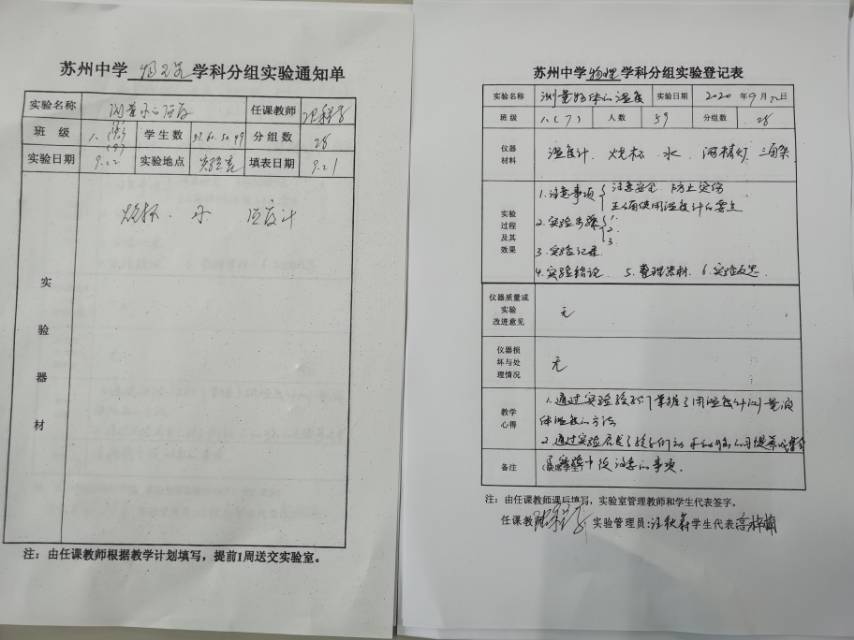 苏州中学 物理 学科分组实验通知单
实验名称 测量水的温度 任课教师
班 级 学生数 分组数 28
实验日期 9.22 实验地点 实验室 填表日期 9.21
烧杯 . 水 温度计
实
验
器
材
注:由任课教师根据教学计划填写,提前1周送交实验室。
苏州中学 物理 学科分组实验登记表
实验名称 测量物体的温度 实验日期 2020年9月22日
班 级 1.(7) 人数 59 分组数 28
仪器
材料
温度计. 烧杯. 水. 酒精灯. 三角架
实验
过程
及其
效果
1.注意事项 注意安全. 防止烫伤
正确使用温度计的要点
2.实验步骤 1.
2.
3.
3.实验记录
4.实验结论. 5.整理器材. 6.实验反思.
仪器质量或
实验
改进意见
无
仪器损
坏与处
理情况
无
教学
心得
1.通过实验孩子们掌握了用温度计测量液
体温度的方法
2.通过实验
备注
(缺席学生)
实验中应注意的事项.
注:由任课教师课后填写,实验室管理教师和学生代表签字。
任课教师 实验管理员: 学生代表